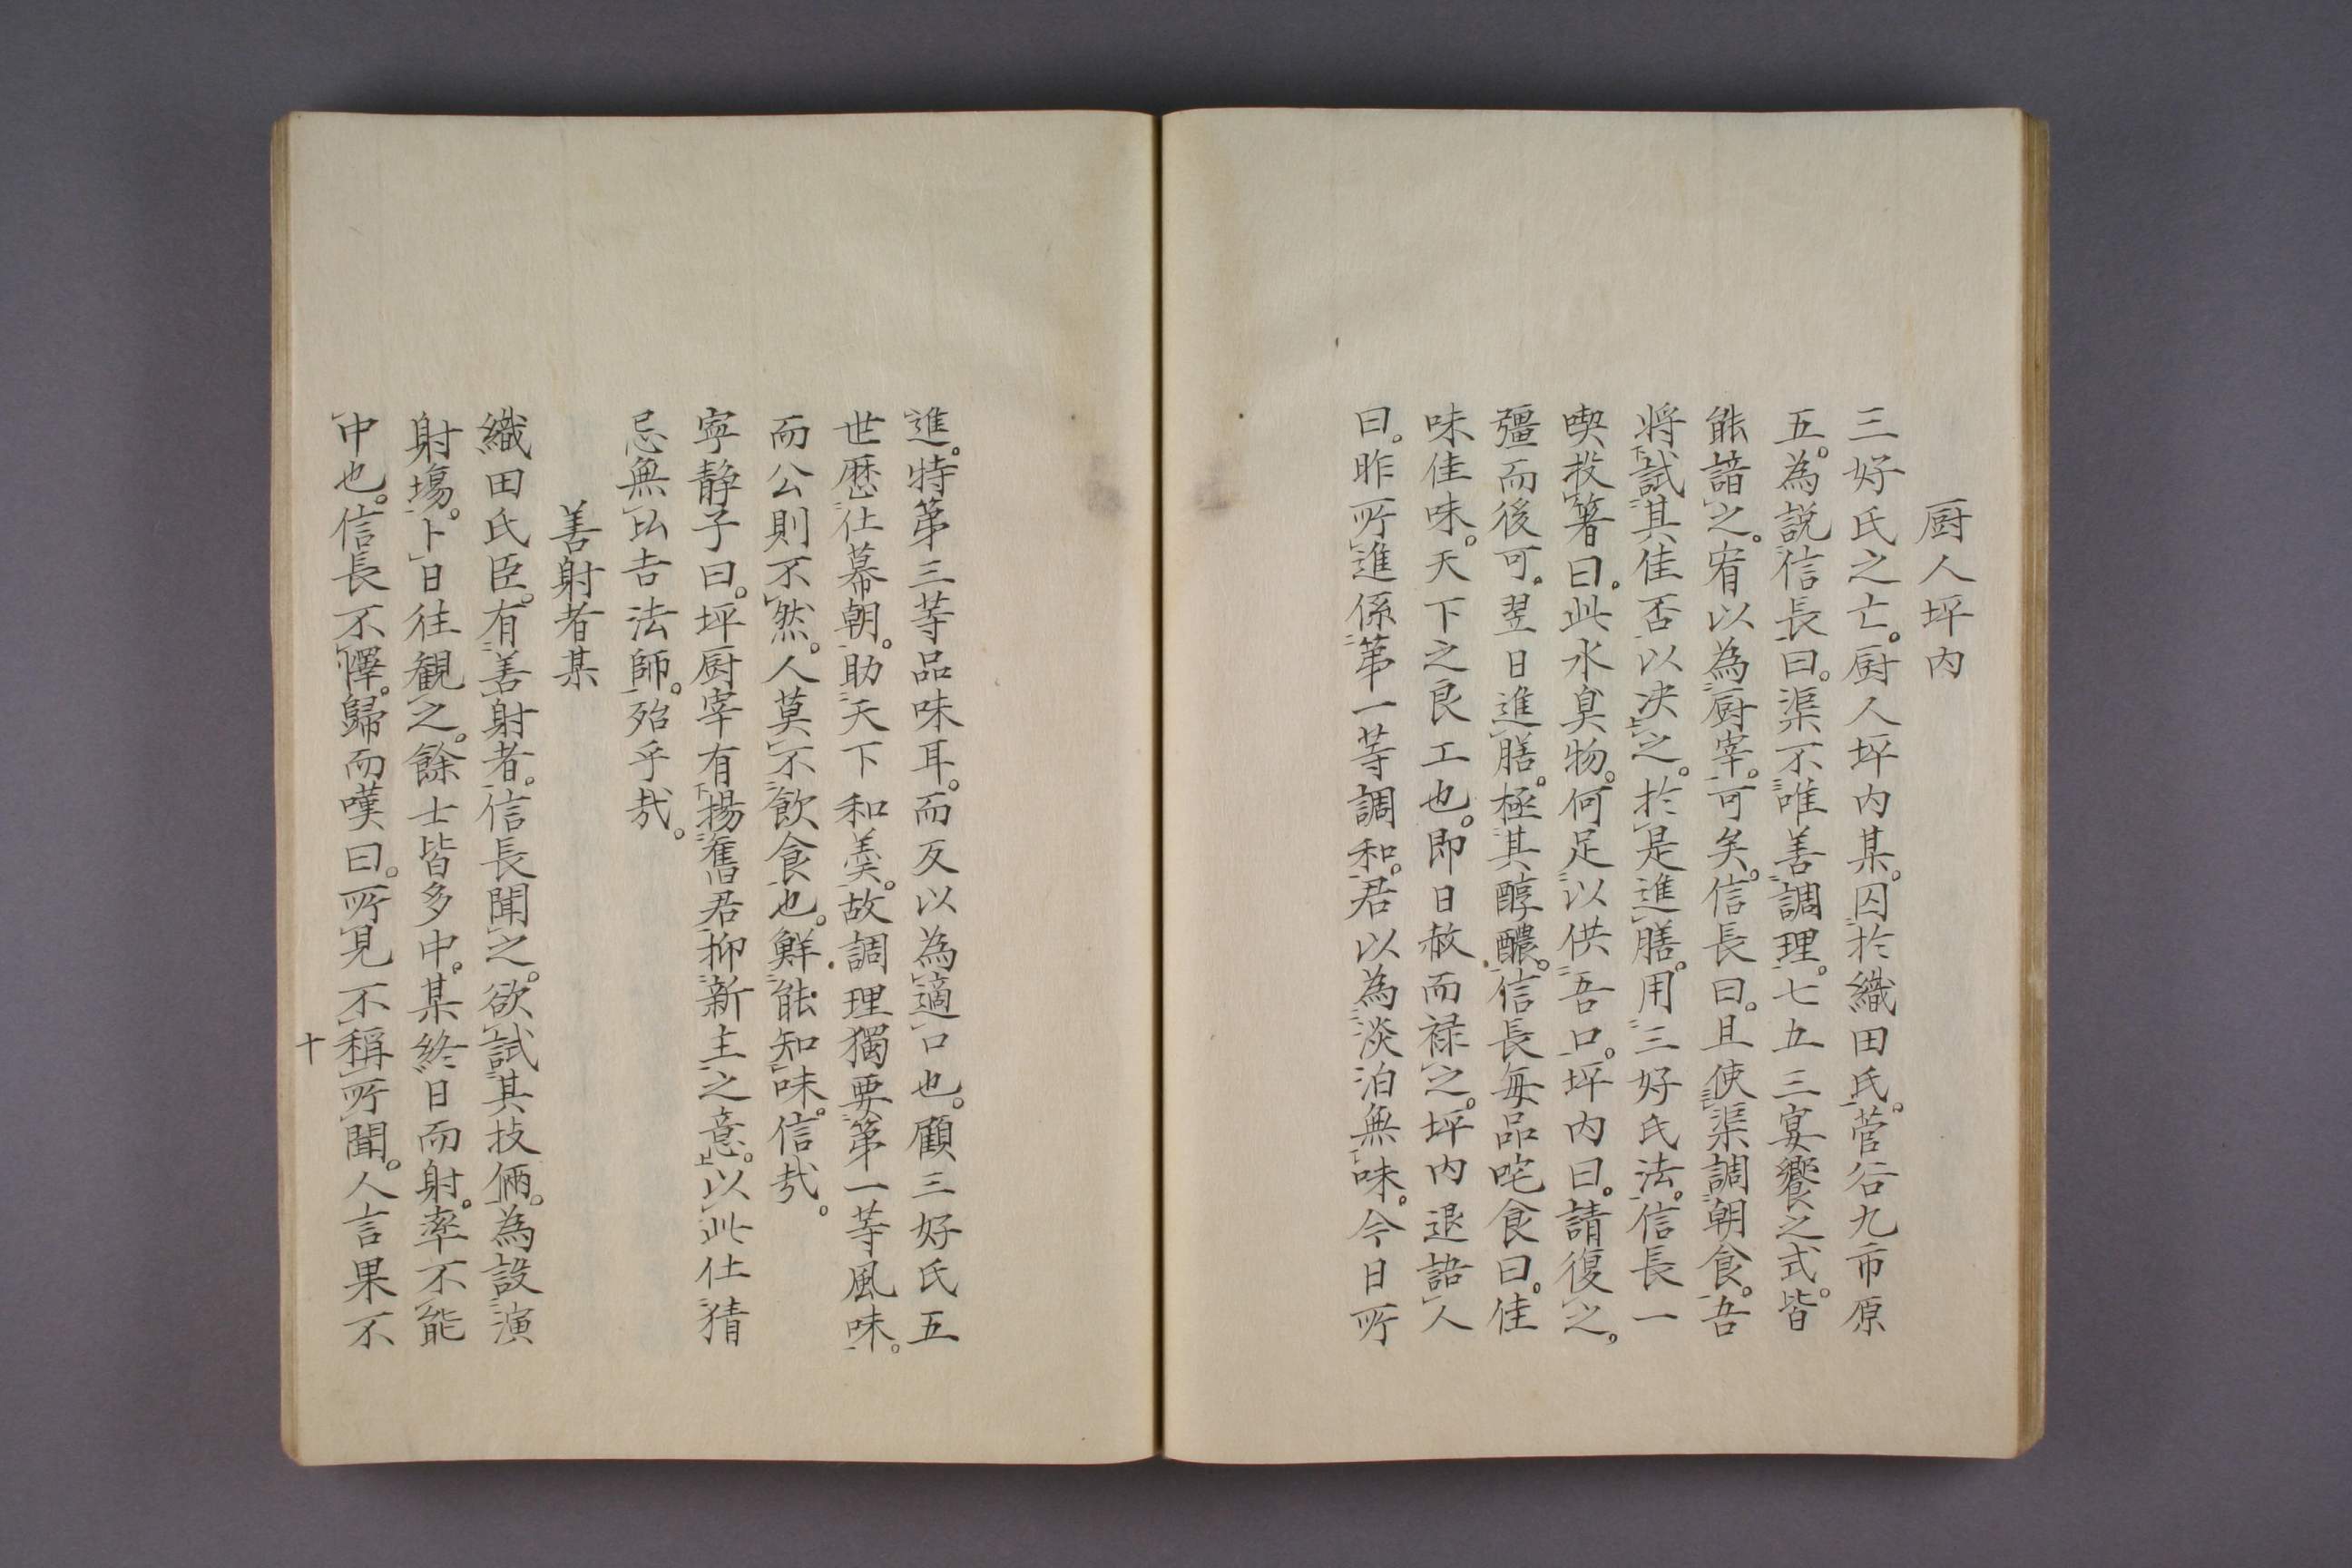 厨人坪内
三好氏之亡。厨人坪内某。囚於織田氏。菅谷九市原
五。為説信長曰。渠不唯善調理。七五三宴饗之式。皆
能諳之。宥以為厨宰。可矣。信長曰。且使渠調朝食。吾
将試其佳否以决之。於是進膳。用三好氏法。信長一
喫投箸曰。此水臭物。何足以供吾口。坪内曰。請復之。
彊而後可。翌日進膳。極其醇醲。信長毎品咤食曰。佳
味佳味。天下之良工也。即日赦而禄之。坪内退語人
曰。昨所進係第一等調和。君以為淡泊無味。今日所
進。特第三等品味耳。而反以為適口也。顧三好氏五
世歴仕幕朝。助天下和羹。故調理獨要第一等風味。
而公則不然。人莫不飲食也。鮮能知味。信哉。
寧静子曰。坪厨宰有揚舊君抑新主之意。以此仕猜
忌無比吉法師。殆乎哉。
善射者某
織田氏臣。有善射者。信長聞之。欲試其技倆。為設演
射塲。卜日往観之。餘士皆多中。某終日而射。率不能
中也。信長不懌。歸而嘆曰。所見不稱所聞。人言果不
十